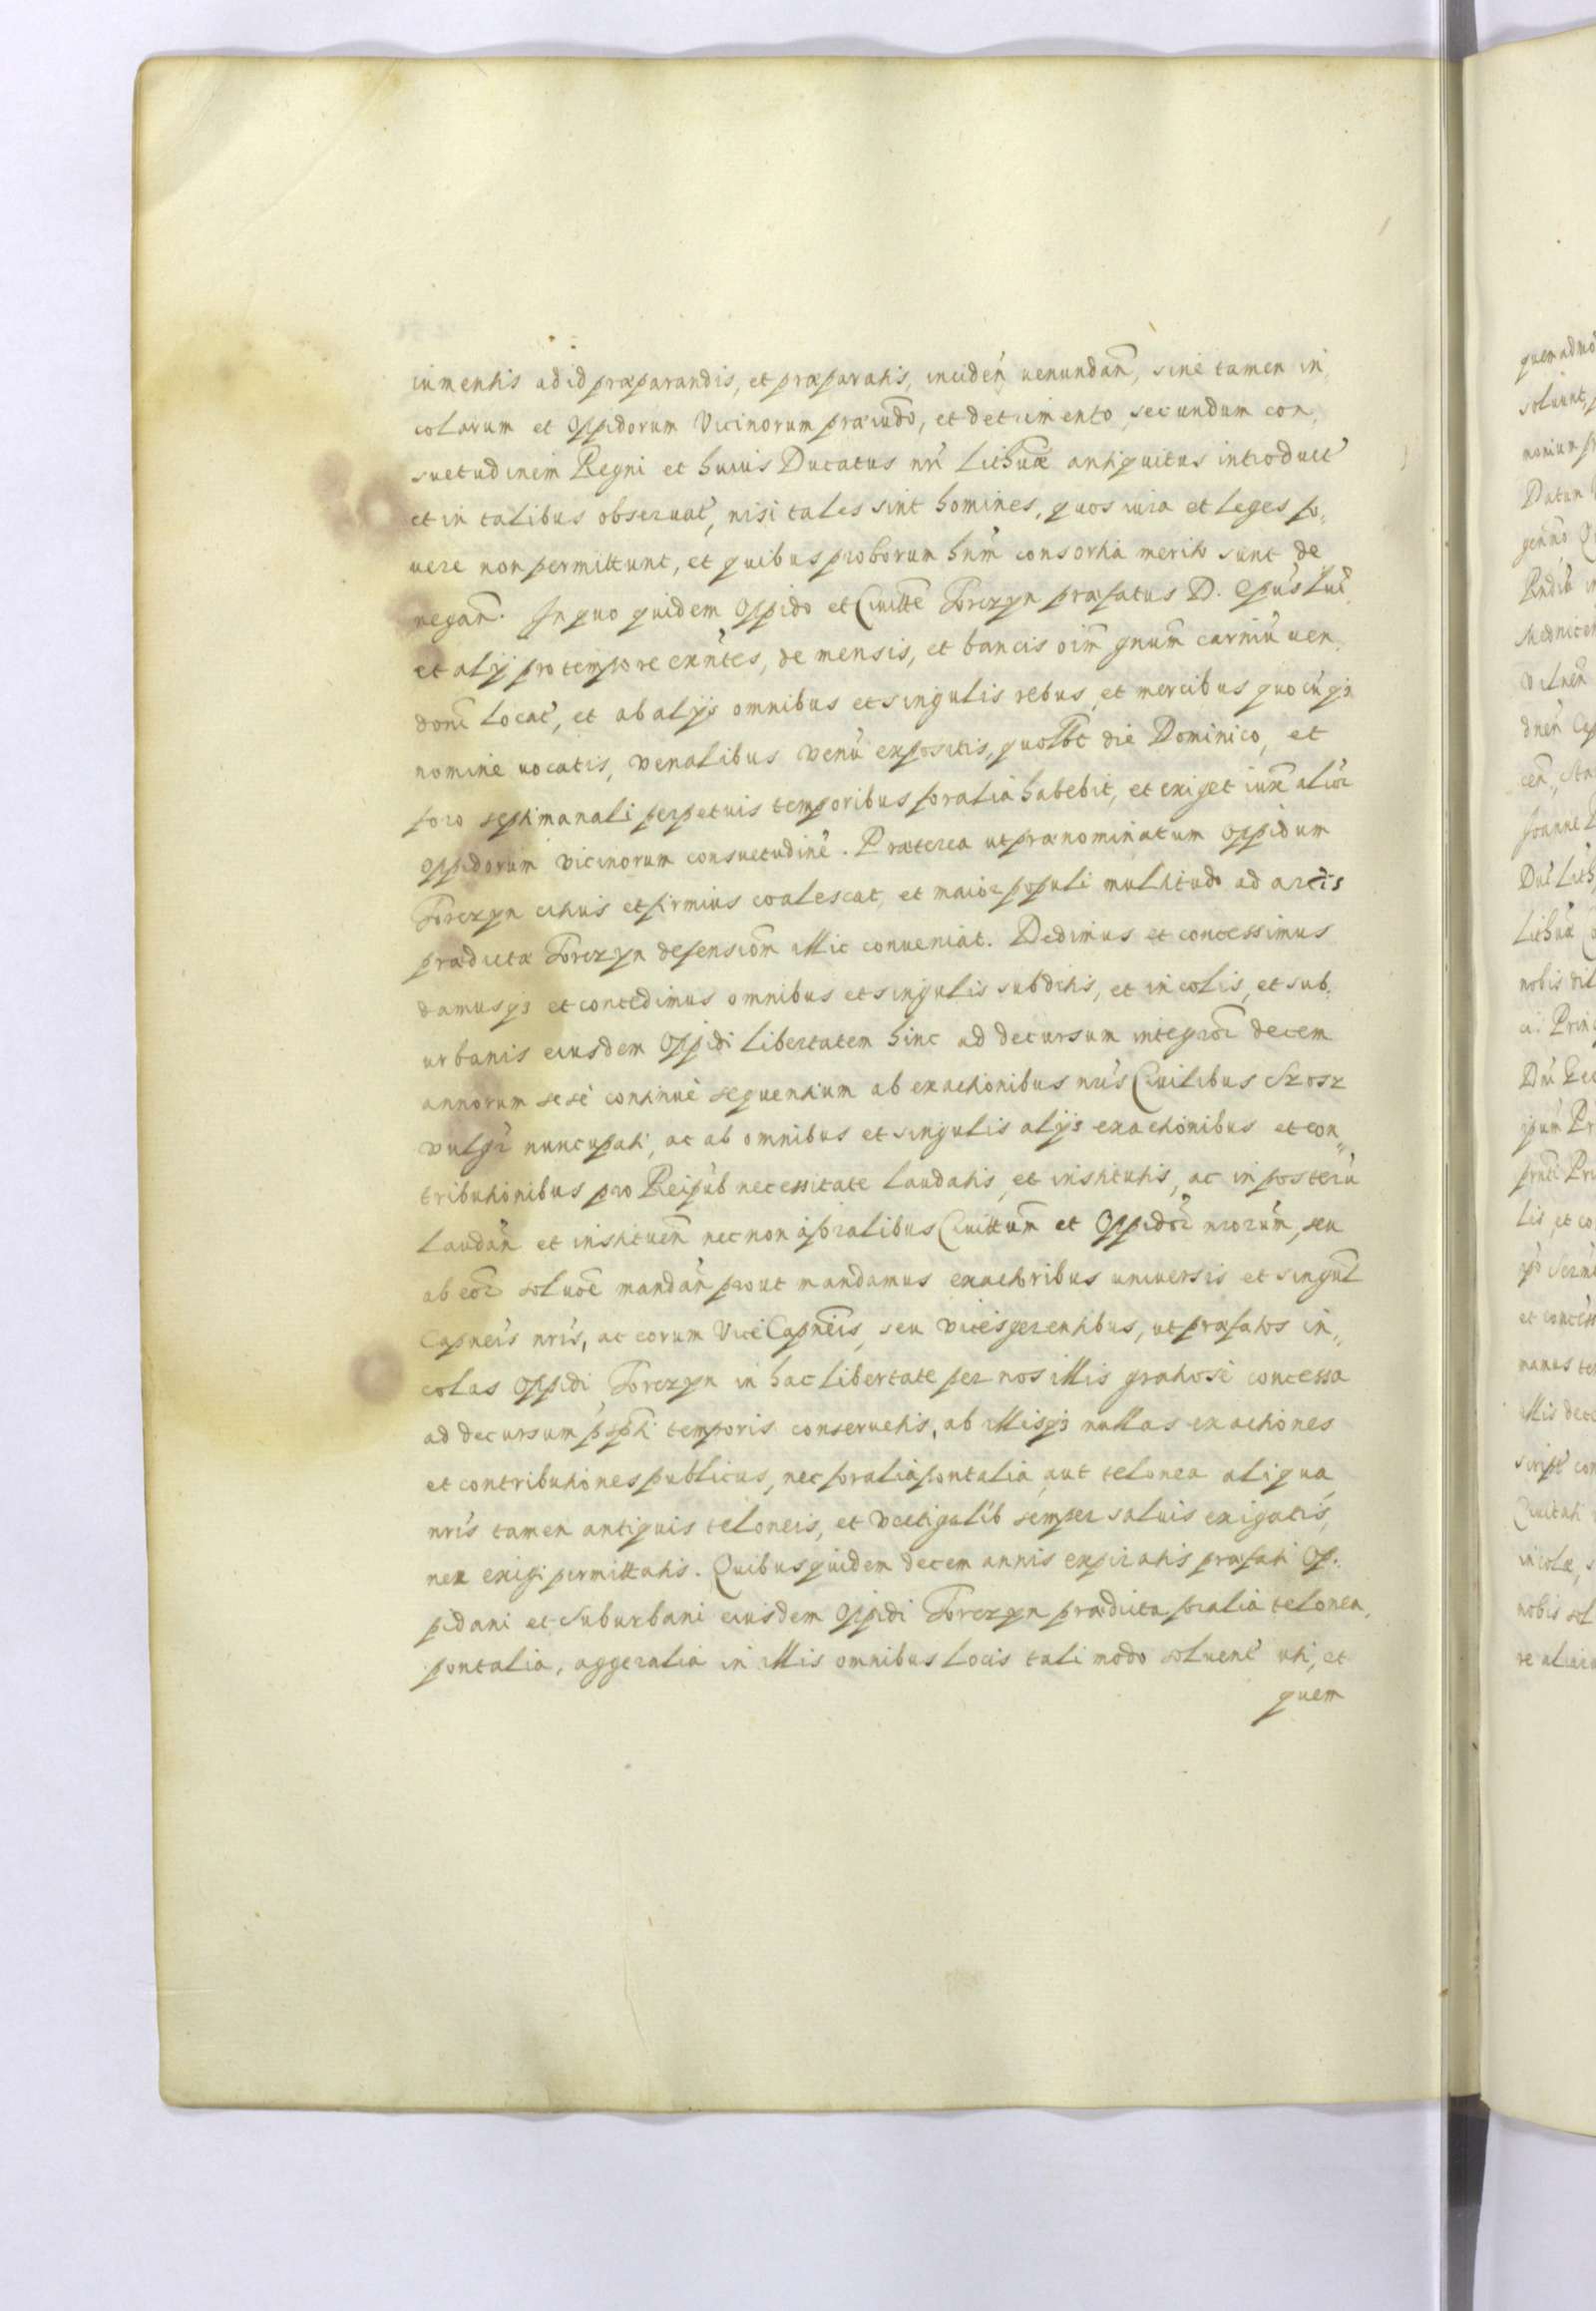 iumentis ad id præparandis, et præparatis, inciden̄ uenundan̄, sine tamen in
colarum et Oppidorum Vicinorum præiudō, et detrimento, secundum con,
suetudinem Regni et huius Ducatus nrī Lithuæ antiquitus introduct̄
et in talibus obseruat̄, nisi tales sint homines, quos iura et leges fo„
uere non permittunt, et quibus proborum hnm̄ consortia merito sunt de
negan̄. In quo quidem Oppido et Ciuittē Torczyn præfatus D. Epūs Luc̄
et alij pro tempore exn̄tes, de mensis, et bancis oīm gnum̄ carniū uen,
don̄ locat̄, et ab alijs omnibus et singulis rebus, et mercibus quocūq3
nomine uocatis, venalibus venū expositis, quolbt̄ die Dominico, et
foro septimanali perpetuis temporibus foralia habebit, et exiget iux̄ alioꝝ
Oppidorum vicinorum consuetudinē. Præterea ut prænominatum oppidum
Torczyn citius et firmius coalescat, et maior populi multitudo ad arcis
prædictæ Torczyn defensiom̄ illic conueniat. Dedimus et concessimus
damusq3 et concedimus omnibus et singulis subditis, et incolis, et sub,
urbanis eiusdem Oppidi libertatem hinc ad decursum integroꝝ decem
annorum sesè continuè sequentium ab exactionibus nrīs Ciuilibus Szosz
vulgr̄ nuncupati, ac ab omnibus et singulis alijs exactionibus et con„
tributionibus pro Reipub̄ necessitate laudatis, et institutis, ac in posterū
laudan̄ et instituen̄ nec non à foralibus Ciuittum̄ et Oppidoꝝ nrorum̄, seu
ab eoꝝ soluōē mandan̄ prout mandamus exactoribus uniuersis et singul̄
Capneīs nrīs, ac eorum Vice Capneīs, seu vices gerentibus, ut præfatos in„
colas Oppidi Torczyn in hac libertate per nos illis gratiosè concessa
ad decursum p̄sc̄pti temporis conseruetis, ab illisq3 nullas exactiones
et contributiones publicus, nec foralia pontalia aut telonea aliqua
nrīs tamen antiquis teloneis, et vectigalib̄ semper saluis exigatis,
nex exigi permittatis. Quibus quidem decem annis expiratis præfati Op„
pidani et Suburbani eiusdem Oppidi Torczyn prædicta foralia telonea,
pontalia, aggeralia in illis omnibus locis tali modo soluent̄ uti, et
quem